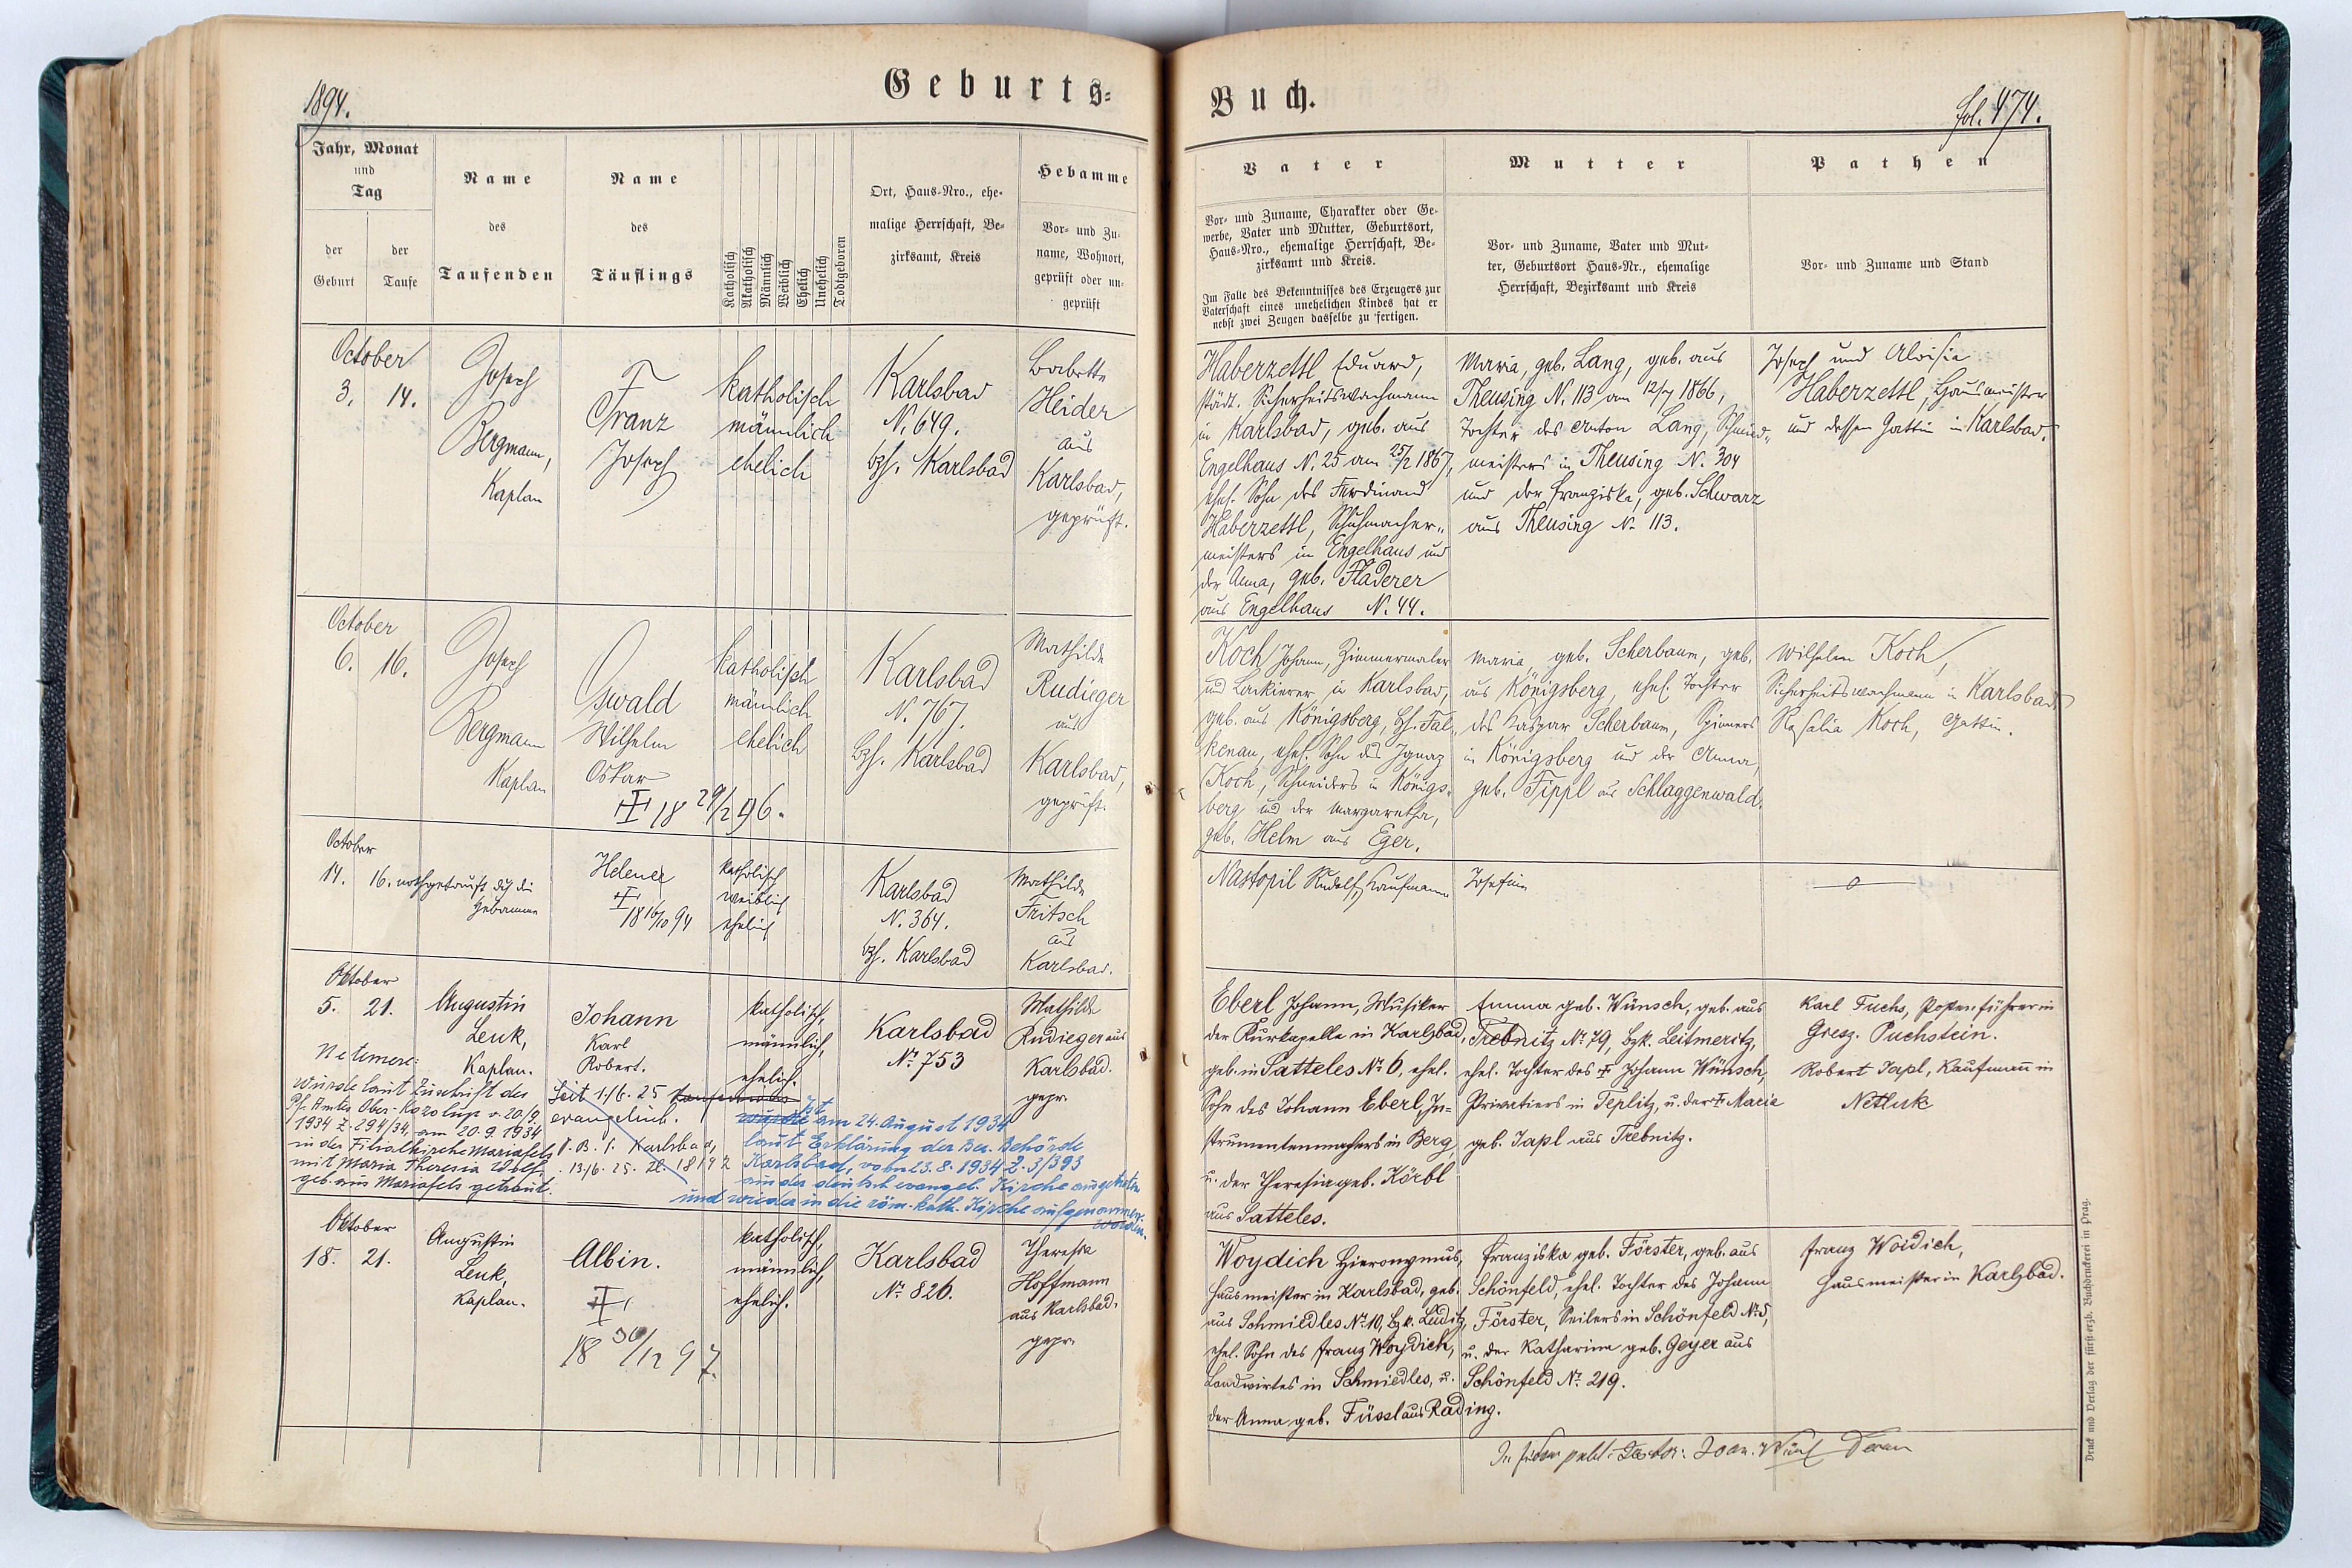 1894.
Geburts-
Jahr, Monat
und
Tag
der
Geburt
der
Taufe
Name
des
Taufenden
Name
des
Täuflings
Katholisch
Akatholisch
Männlich
Weiblich
Ehelich
Unehelich
Todtgeboren
Ort, Haus-Nro., ehe-
malige Herrschaft, Be-
zirksamt, Kreis
Hebamme
Vor- und Zu-
name, Wohnort,
geprüft oder un-
geprüft
October
3. 14.
Joseph
Bergmann,
Kaplan
Franz
Joseph
katholisch
männlich
ehelich
Karlsbad
N. 649.
bzh. Karlsbad
Babette
Heider
aus
Karlsbad,
geprüft.
October
6. 16.
Joseph
Bergmann
Kaplan
Oswald
Wilhelm
Oskar
18 29/2 96.
katholisch
männlich
ehelich
Karlsbad
N. 767.
bzh. Karlsbad
Mathilde
Rudieger
aus
Karlsbad,
geprüft.
October
14. 16. nothgetauft dch die
Hebamme
Helene
18 16/10 94
katholisch
weiblich
ehelich
Karlsbad
N. 364.
bzh. Karlsbad
Mathilde
Fritsch
aus
Karlsbad.
Oktober
5. 21.
Augustin
Leuk,
Kaplan.
Johann
Karl
Robert.
katholisch,
männlich,
ehelich.
Karlsbad
No. 753
Mathilde
Rudieger aus
Karlsbad.
gepr.
wurde laut Zuschrift des
Pf. Amtes Ober-Kozolup v. 20/9.
1934 Z. 294/34, am 20.9.1934
in der Filialkirche Mariafels
mit Maria Theresia Wolf
geb. aus Mariafels getraut.
Seit 1./6. 25
evangelisch.
V. B. h. Karlsbad,
13/6. 25. Zl. 18192
ist
wurde am 24. August 1934
laut Erklärung der Bez. Behörde
Karlsbad, vom 23.8.1934 Z. 3/393
aus der deutsch evangel. Kirche ausgetreten
und wieder in die röm. kath. Kirche aufgenommen
worden.
Oktober
18. 21.
Augustin
Leuk,
Kaplan.
Albin.
18 30/12 97.
katholisch,
männlich,
ehelich.
Karlsbad
No. 826.
Theresia
Hoffmann
aus Karlsbad.
gepr.
Buch.
fol. 474.
Vater
Vor- und Zuname, Charakter oder Ge-
werbe, Vater und Mutter, Geburtsort,
Haus-Nro., ehemalige Herrschaft, Be-
zirksamt und Kreis.
Im Falle des Bekenntnisses des Erzeugers zur
Vaterschaft eines unehelichen Kindes hat er
nebst zwei Zeugen dasselbe zu fertigen.
Mutter
Vor- und Zuname, Vater und Mut-
ter, Geburtsort Haus-Nr., ehemalige
Herrschaft, Bezirksamt und Kreis
Pathen
Vor- und Zuname und Stand
Haberzettl Eduard,
städt. Sicherheitswachmann
in Karlsbad, geb. aus
Engelhaus N. 25 am 25/2 1867,
ehel. Sohn des Ferdinand
Haberzettl, Schuhmacher-
meisters in Engelhaus und
der Anna, geb. Fladerer
aus Engelhaus N. 44.
Maria, geb. Lang, geb. aus
Theusing N. 113 am 12/7 1866,
Tochter des Anton Lang, Schmied-
meisters in Theusing N. 304
und der Franziska, geb. Schwarz
aus Theusing N. 113.
Joseph und Aloisia
Haberzettl, Hausmeister
und dessen Gattin in Karlsbad.
Koch Johann, Zimmermaler
und Lackierer in Karlsbad,
geb. aus Königsberg, bzh. Fal-
kenau, ehel. Sohn des Ignaz
Koch, Schneiders in Königs-
berg und der Margaretha,
geb. Helm aus Eger.
Maria, geb. Scherbaum, geb.
aus Königsberg, ehel. Tochter
des Kaspar Scherbaum, Spinners
in Königsberg und der Anna,
geb. Tippl aus Schlaggenwald.
Wilhelm Koch,
Sicherheitswachmann in Karlsbad
Rosalia Koch, Gattin.
Nastopil Rudolf, Kaufmann
Josefine
Eberl Johann, Musiker
der Kurkapelle in Karlsbad,
geb. in Satteles No. 6, ehel.
Sohn des Johann Eberl, In-
strumentenmachers in Berg,
u. der Theresia geb. Körbl
aus Satteles.
Emma geb. Wünsch, geb. aus
Trebnitz No. 79, bzk. Leitmeritz,
ehel. Tochter des Johann Wünsch,
Privatiers in Teplitz, u. der Maria
geb. Japl aus Trebnitz.
Karl Fuchs, Postenführer in
Gresz. Puchstein.
Robert Japl, Kaufmann in
Netluk
Woydich Hieronymus,
Hausmeister in Karlsbad, geb.
aus Schmiedles No. 10, bzk. Luditz,
ehel. Sohn des Franz Woydich,
Landwirtes in Schmiedles, u.
der Anna geb. Füssl aus Rading.
Franziska geb. Förster, geb. aus
Schönfeld, ehel. Tochter des Johann
Förster, Seilers in Schönfeld No. 5,
u. der Katharina geb. Geyer aus
Schönfeld No. 219.
Franz Woidich,
Hausmeister in Karlsbad.
Druck und Verlag der fürst-erzb. Buchdruckerei in Prag.